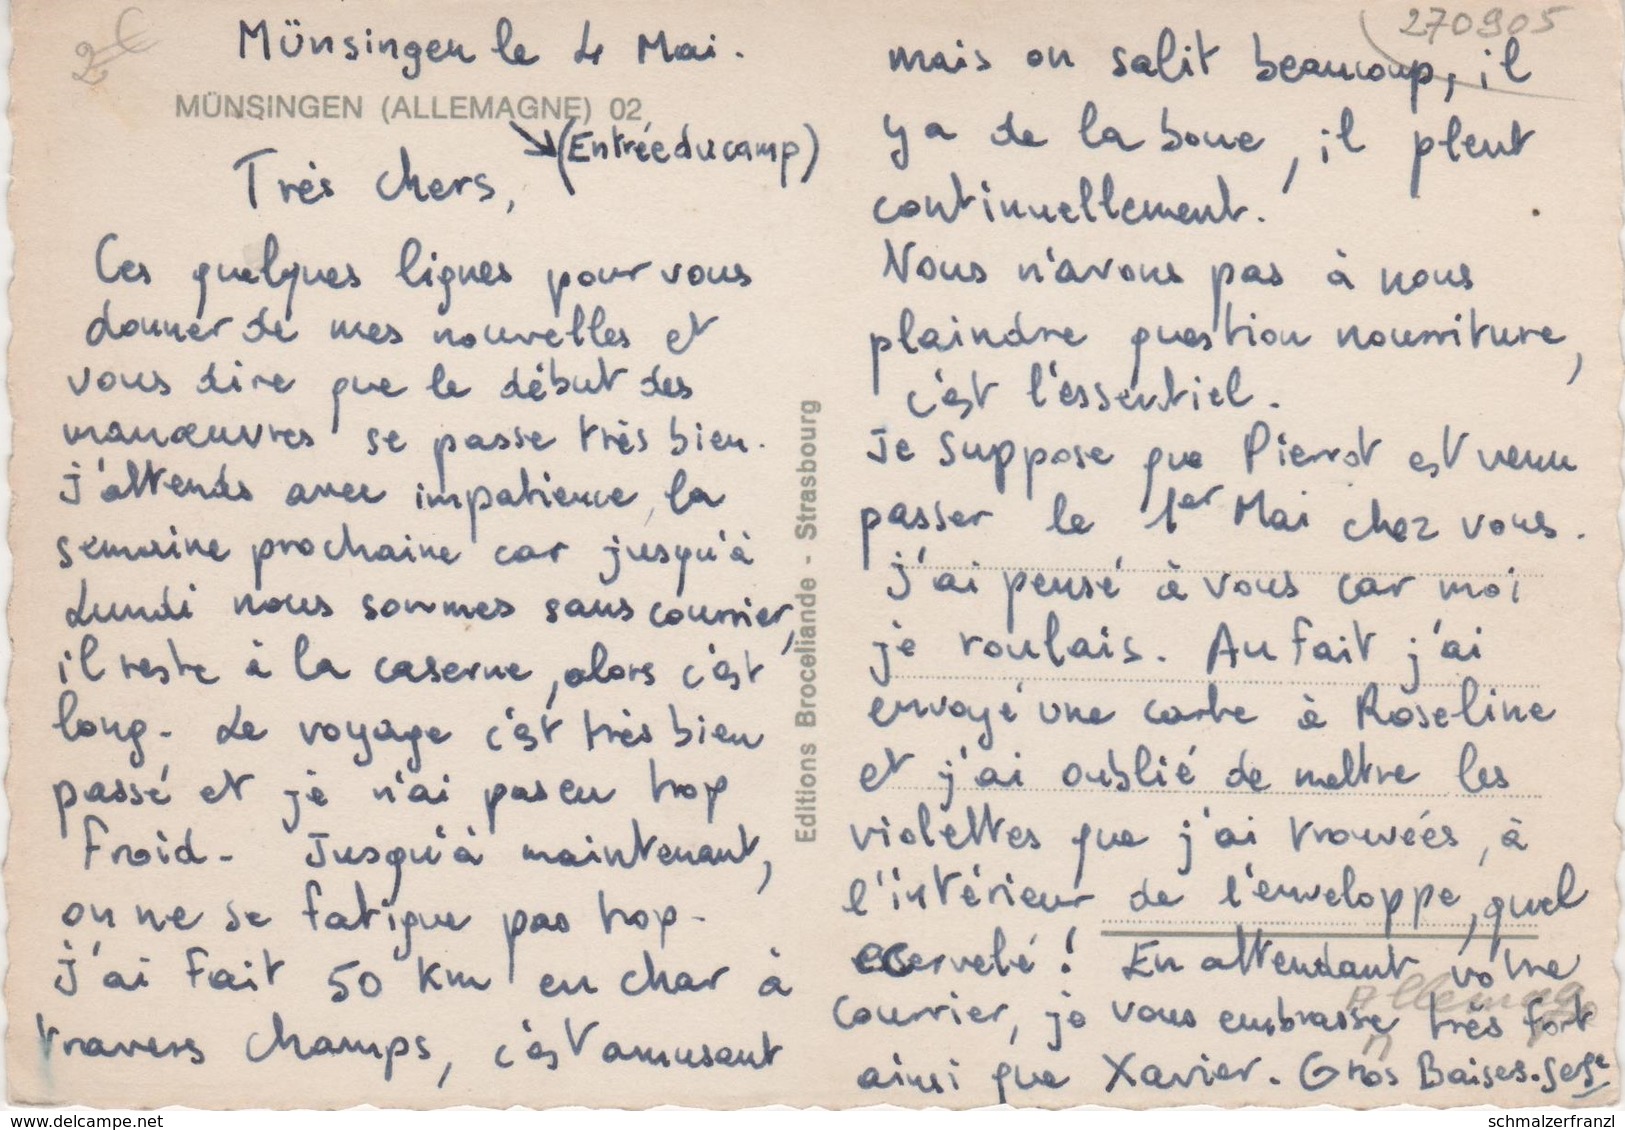 Münsingen le 4 Mai.
MÜNSINGEN (ALLEMAGNE) 02
(Entrée du camp)
Très chers,
Ces quelques lignes pour vous
donner de mes nouvelles et
vous dire que le début des
manœuvres se passe très bien.
J'attends avec impatience, la
semaine prochaine car jusqu'à
Lundi nous sommes sans courrier,
il reste à la caserne, alors c'est
long. Le voyage c'est très bien
passé et je n'ai pas eu trop
froid. Jusqu'à maintenant,
on ne se fatigue pas trop.
J'ai fait 50 km en char à
travers champs, c'est amusant
Editions Broceliande - Strasbourg
270905
mais on salit beaucoup, il
y a de la boue, il pleut
continuellement.
Nous n'avons pas à nous
plaindre question nourriture,
c'est l'essentiel.
Je suppose que Pierrot est venu
passer le 1er Mai chez vous.
J'ai pensé à vous car moi
je roulais. Au fait j'ai
envoyé une carte à Roseline
et j'ai oublié de mettre les
violettes que j'ai trouvées, à
l'intérieur de l'enveloppe, quel
ecervelé! En attendant votre
Allemagne
courrier, je vous embrasse très fort
ainsi que Xavier. Gros Baises. Serge
delcampe.net
schmalzerfranzl